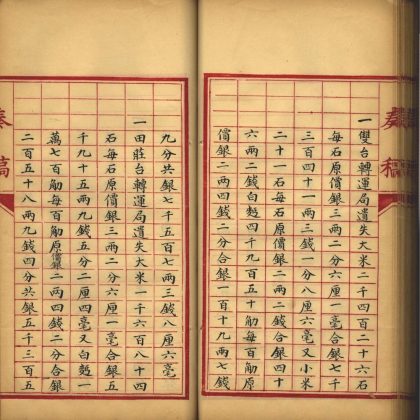 奏稿
一雙台轉運局遺失大米一千四百二十六石
每石原價銀三兩二分六厘一毫合銀四千
三百四十一兩三錢一分八厘六毫又小米
二十一石每石原價銀二兩二錢合銀四十
六兩二錢白麫四千九百五十觔每百觔原
價銀二兩四錢二分合銀一百十九兩七錢
九分共銀四千五百七兩三錢八厘六毫
一田莊台轉運局遺失大米一千六百八十四
石每石原價銀三兩二分六厘一毫合銀五
千九十五兩九錢五分二厘四毫又白麫一
萬七百觔每百觔原價銀二兩四錢二分合銀
二百五十八兩九錢四分共銀五千三百五
奏稿